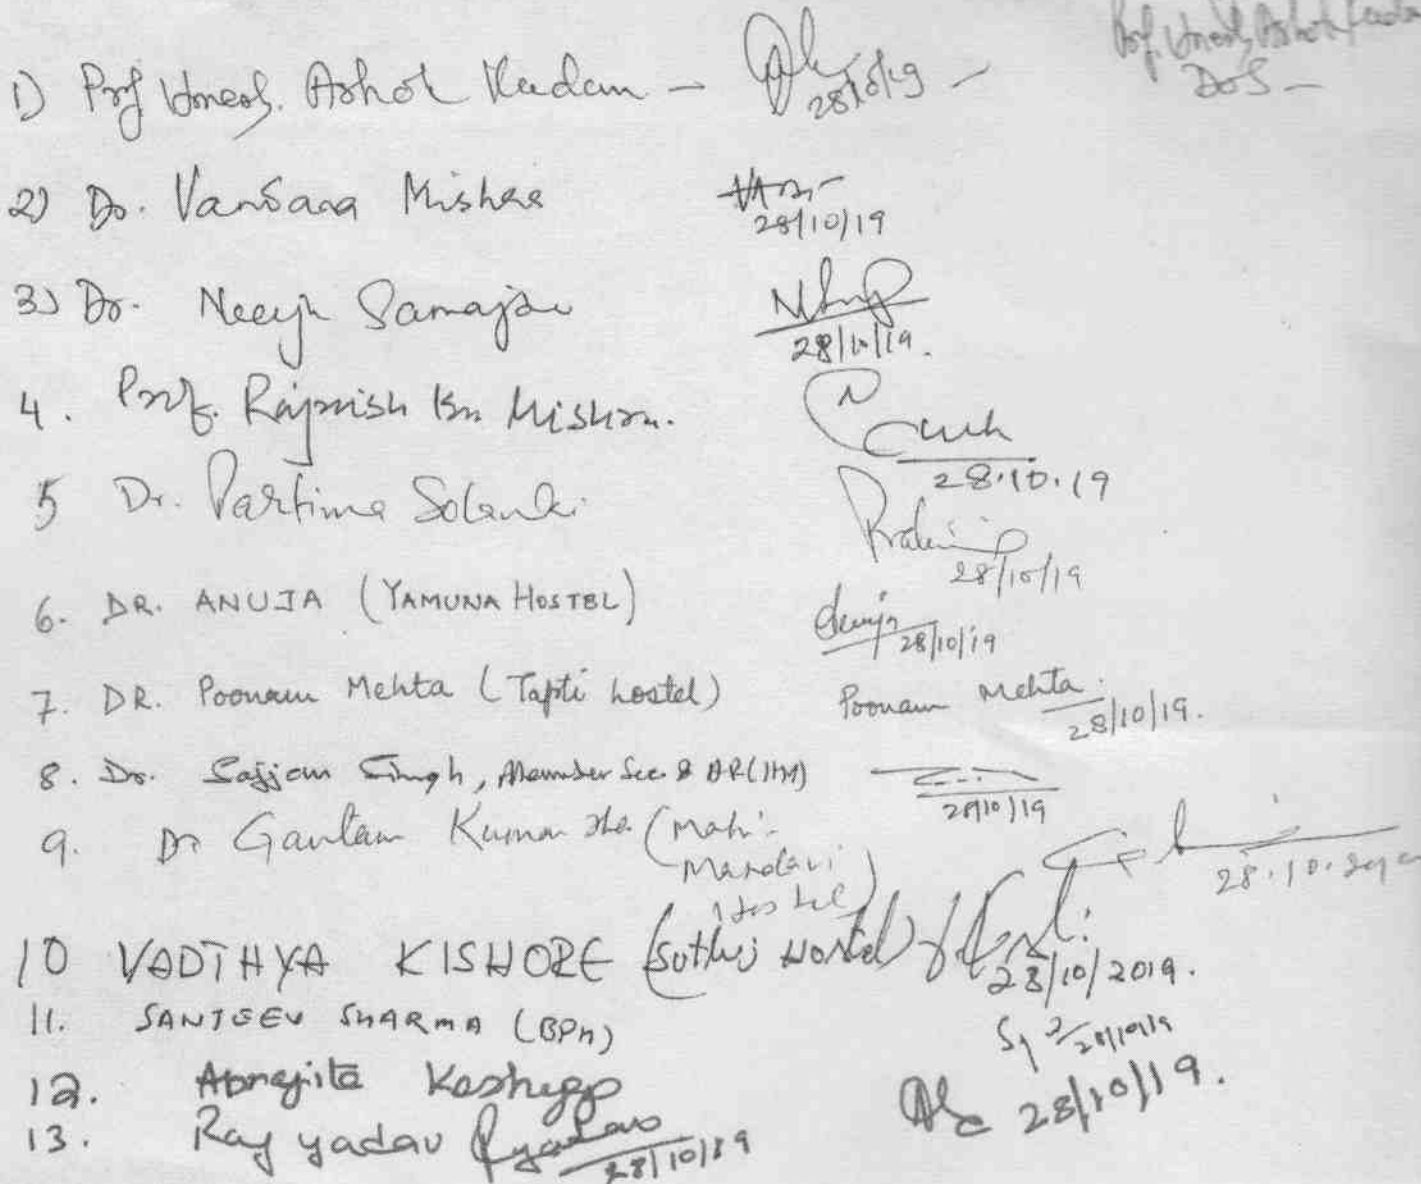 Prof. Umesh Ashok Kadam
DoS -
1) Prof Umesh. Ashok Kadam - 28/10/19 -
2) Dr. Vandana Mishra 28/10/19
3) Dr. Neerja Samajdar 28/10/19.
4. Prof. Rajnish Kr. Mishra. 28.10.19
5 Dr. Partima Solanki 28/10/19
6. DR. ANUJA (YAMUNA HOSTEL) 28/10/19
7. DR. Poonam Mehta (Tapti hostel) Poonam Mehta. 28/10/19.
8. Dr. Sajjan Singh, Member Sec. & AR(IHA) 28/10/19
9. Dr Gautam Kumar Jha (Mahi-
Mandavi
Hostel) 28.10.2019
10 VADTHYA KISHORE (Sutlej Hostel) 28/10/2019.
11. SANJEEV SHARMA (BPH) 28/10/19
12. Kashyap 28/10/19.
13. Raj yadav Ryadav 28/10/19